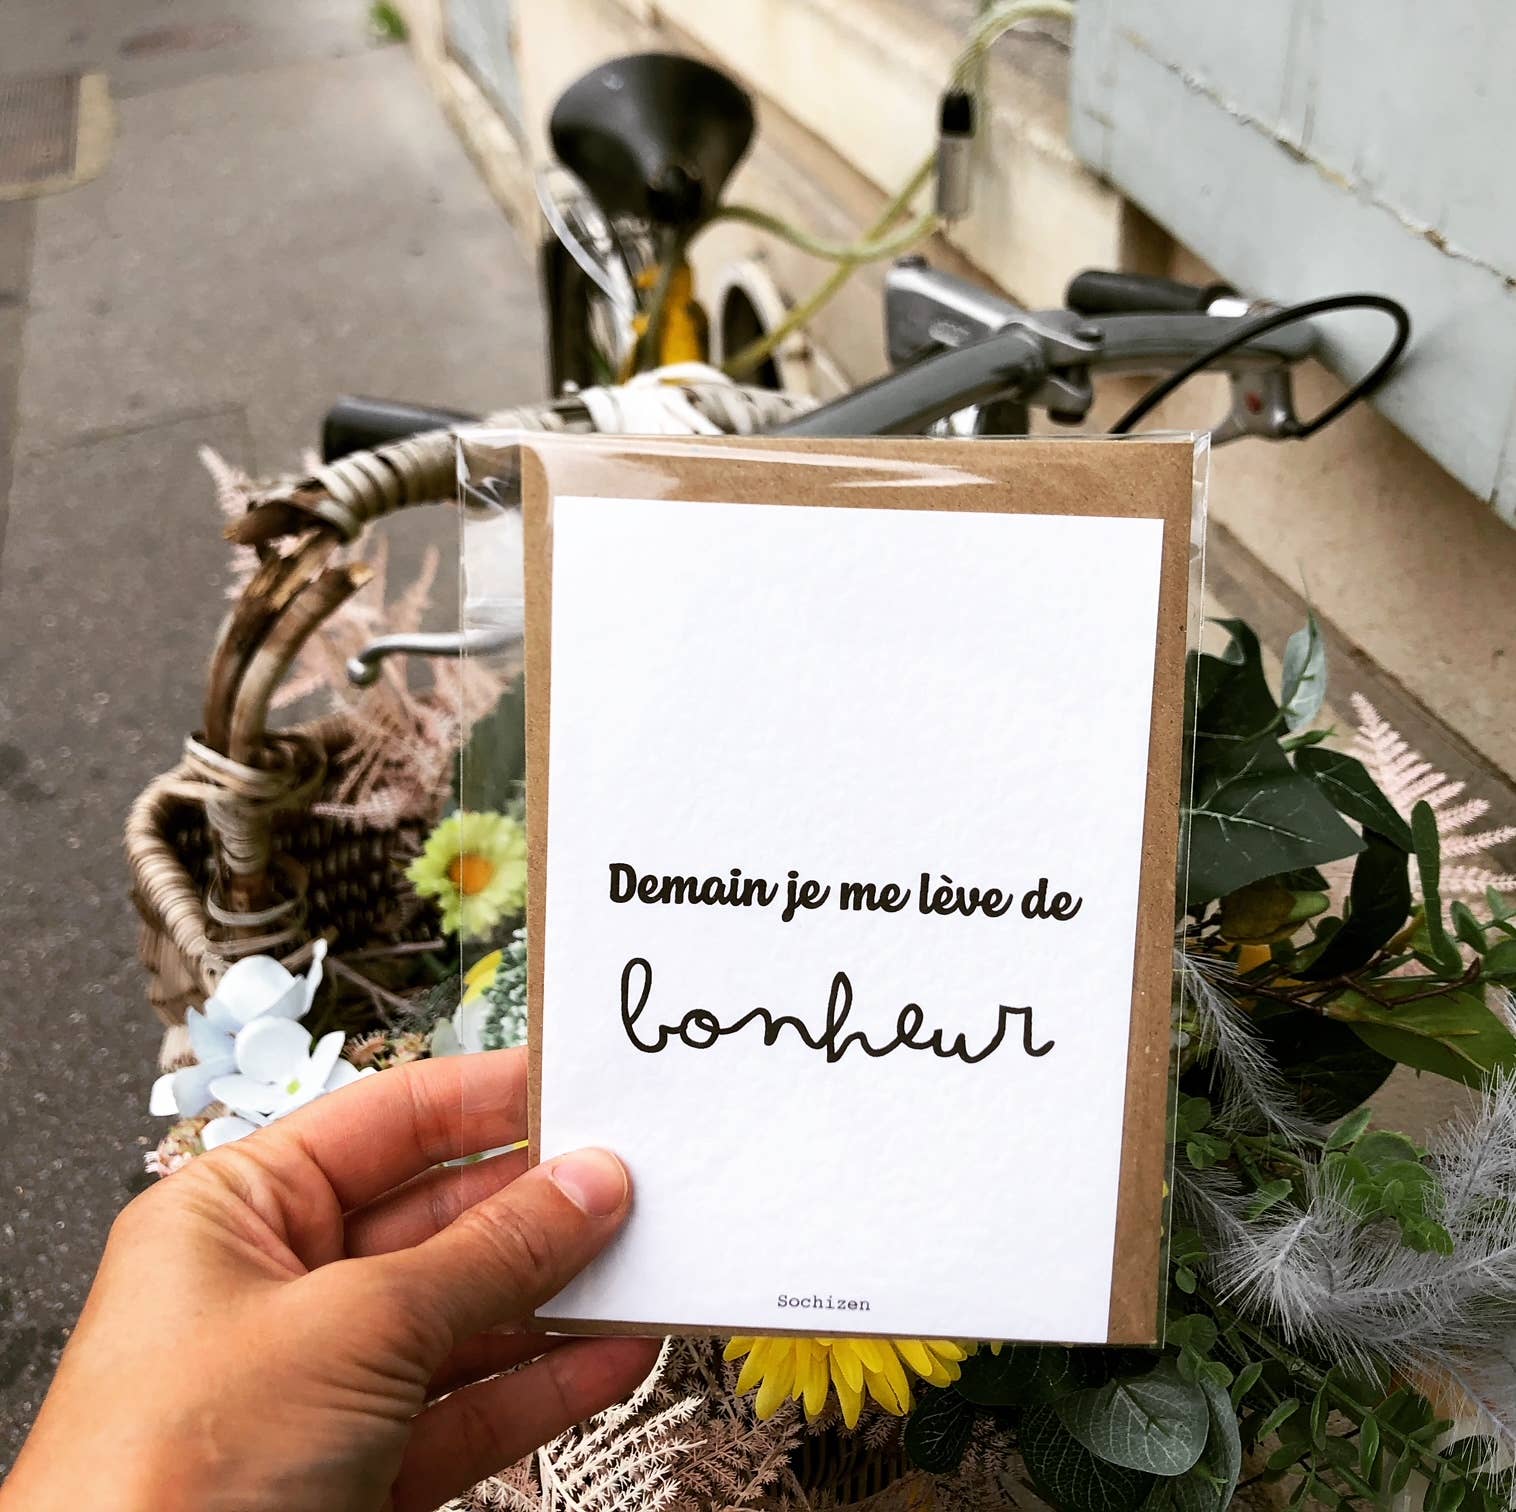 Demain je me lève de
bonheur
Sochizen